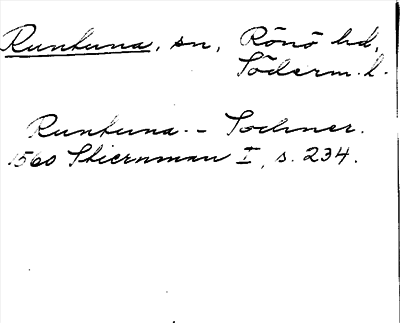 Runtuna, sn, Rönö hd,
Söderm. l.
Runtuna. - Sochner.
1560 Stiernman I, s. 234.